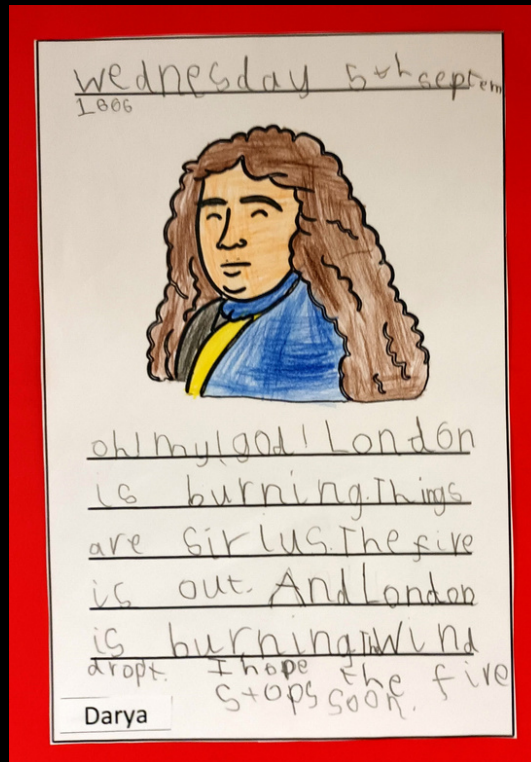 wednesday 5th septem
1666
oh! my! god! London
is burning. Things
are sirlus. The fire
is out. And London
is burning The Wind
dropt. I hope the fire
stops soon.
Darya